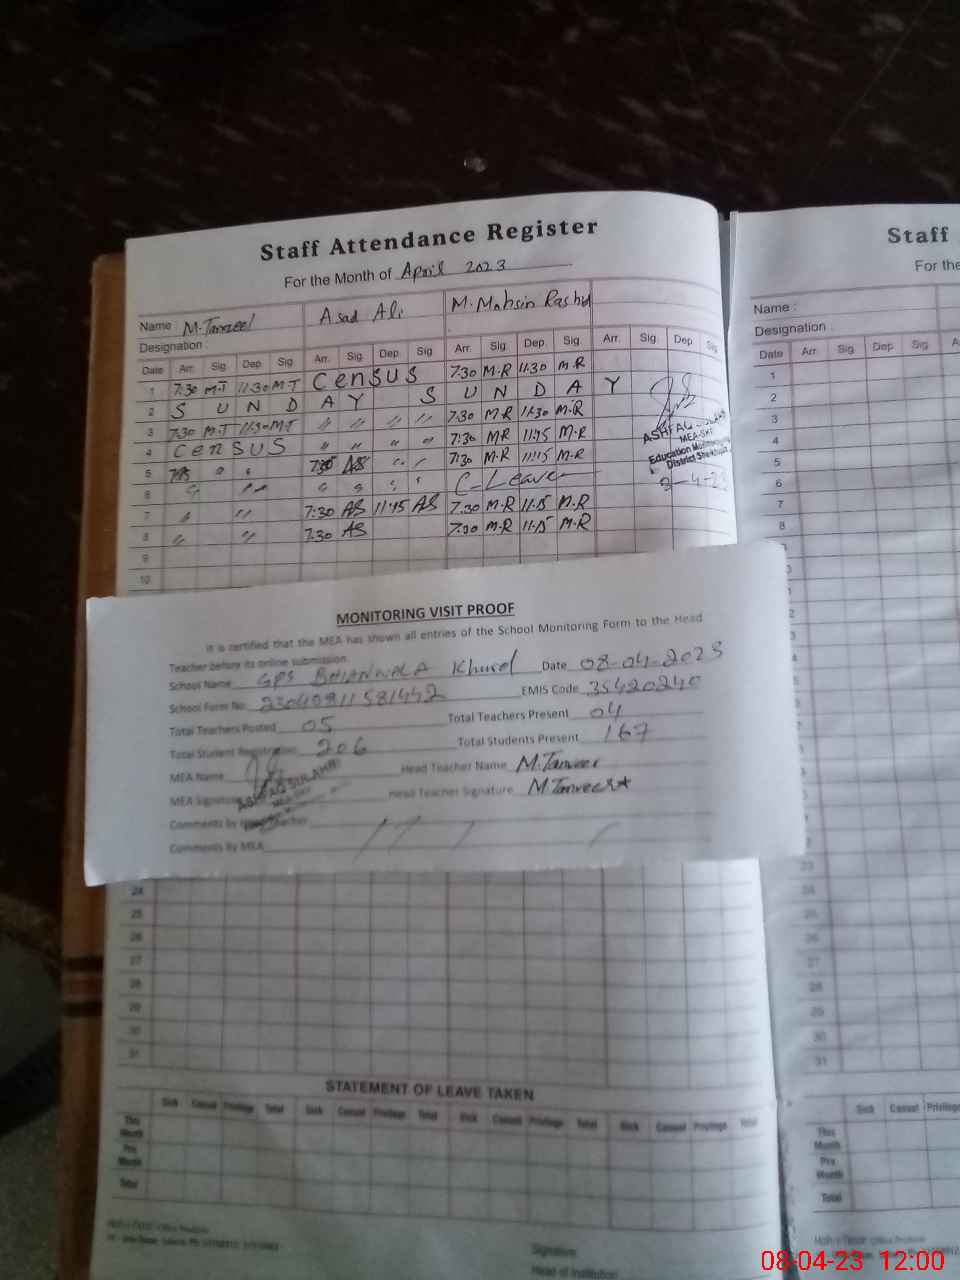 Staff Attendance Register
For the Month of April 2023
Name : M. Tanveel Asad Ali M. Mohsin Rashid
Designation :
Date Arr. Sig. Dep. Sig. Arr. Sig. Dep. Sig. Arr. Sig. Dep. Sig. Arr. Sig. Dep Sig.
1 7:30 M.T 11:30 M.T Census 7:30 M.R 11:30 M.R
2 S U N D A Y S U N D A Y
3 7:30 M.T 11:30 M.T " " " " 7:30 M.R 11:30 M.R
4 Census " " " " 7:30 MR 11:45 M.R
5 7:30 AS 7:30 M.R 11:15 M.R
6 C-Leave
7 7:30 AS 11:15 AS 7.30 M.R 11.15 M.R
8 7.30 AS 7.30 M.R 11.15 M.R
9
10
ASHFAQ SULAHRI
MEA-SKP
Education
District
MONITORING VISIT PROOF
It is certified that the MEA has shown all entries of the School Monitoring Form to the Head
Teacher before its online submission.
School Name GPS BHIANWALA Khurd Date 08-04-2023
School Form No. 23040811581442 EMIS Code 35420240
Total Teachers Posted 05 Total Teachers Present 04
Total Student Registration 206 Total Students Present 167
MEA Name Head Teacher Name M.Tanveer
MEA Signature ASHFAQ SULAHRI Head Teacher Signature M Tanveer
Comments by Head Teacher
Comments By MEA
24
25
26
27
28
29
30
31
STATEMENT OF LEAVE TAKEN
Sick Casual Privilege Total Sick Casual Privilege Total Sick Casual Privilege Total Sick Casual Privilege Total
This Month
Pre Month
Total
Signature
Head of Institution
Staff
For the
Name :
Designation :
Date Arr. Sig. Dep. Sig.
1
2
3
4
5
6
7
8
24
28
29
30
31
Sick Casual Privilege
This Month
Pre Month
Total
08-04-23 12:00